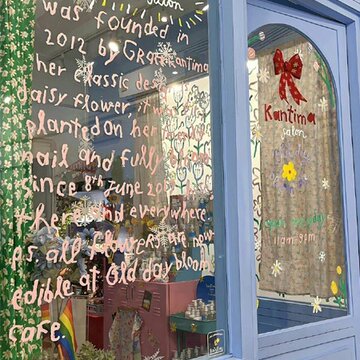 salon
was founded in
2012 by Grace Kantima
her classic
daisy flower, it was
planted on her
nail and fully bloom
since 8th June
& here and everywhere
P.S. all flowers are now
edible at Old day bloom
cafe
Kantima
salon
11am-9pm